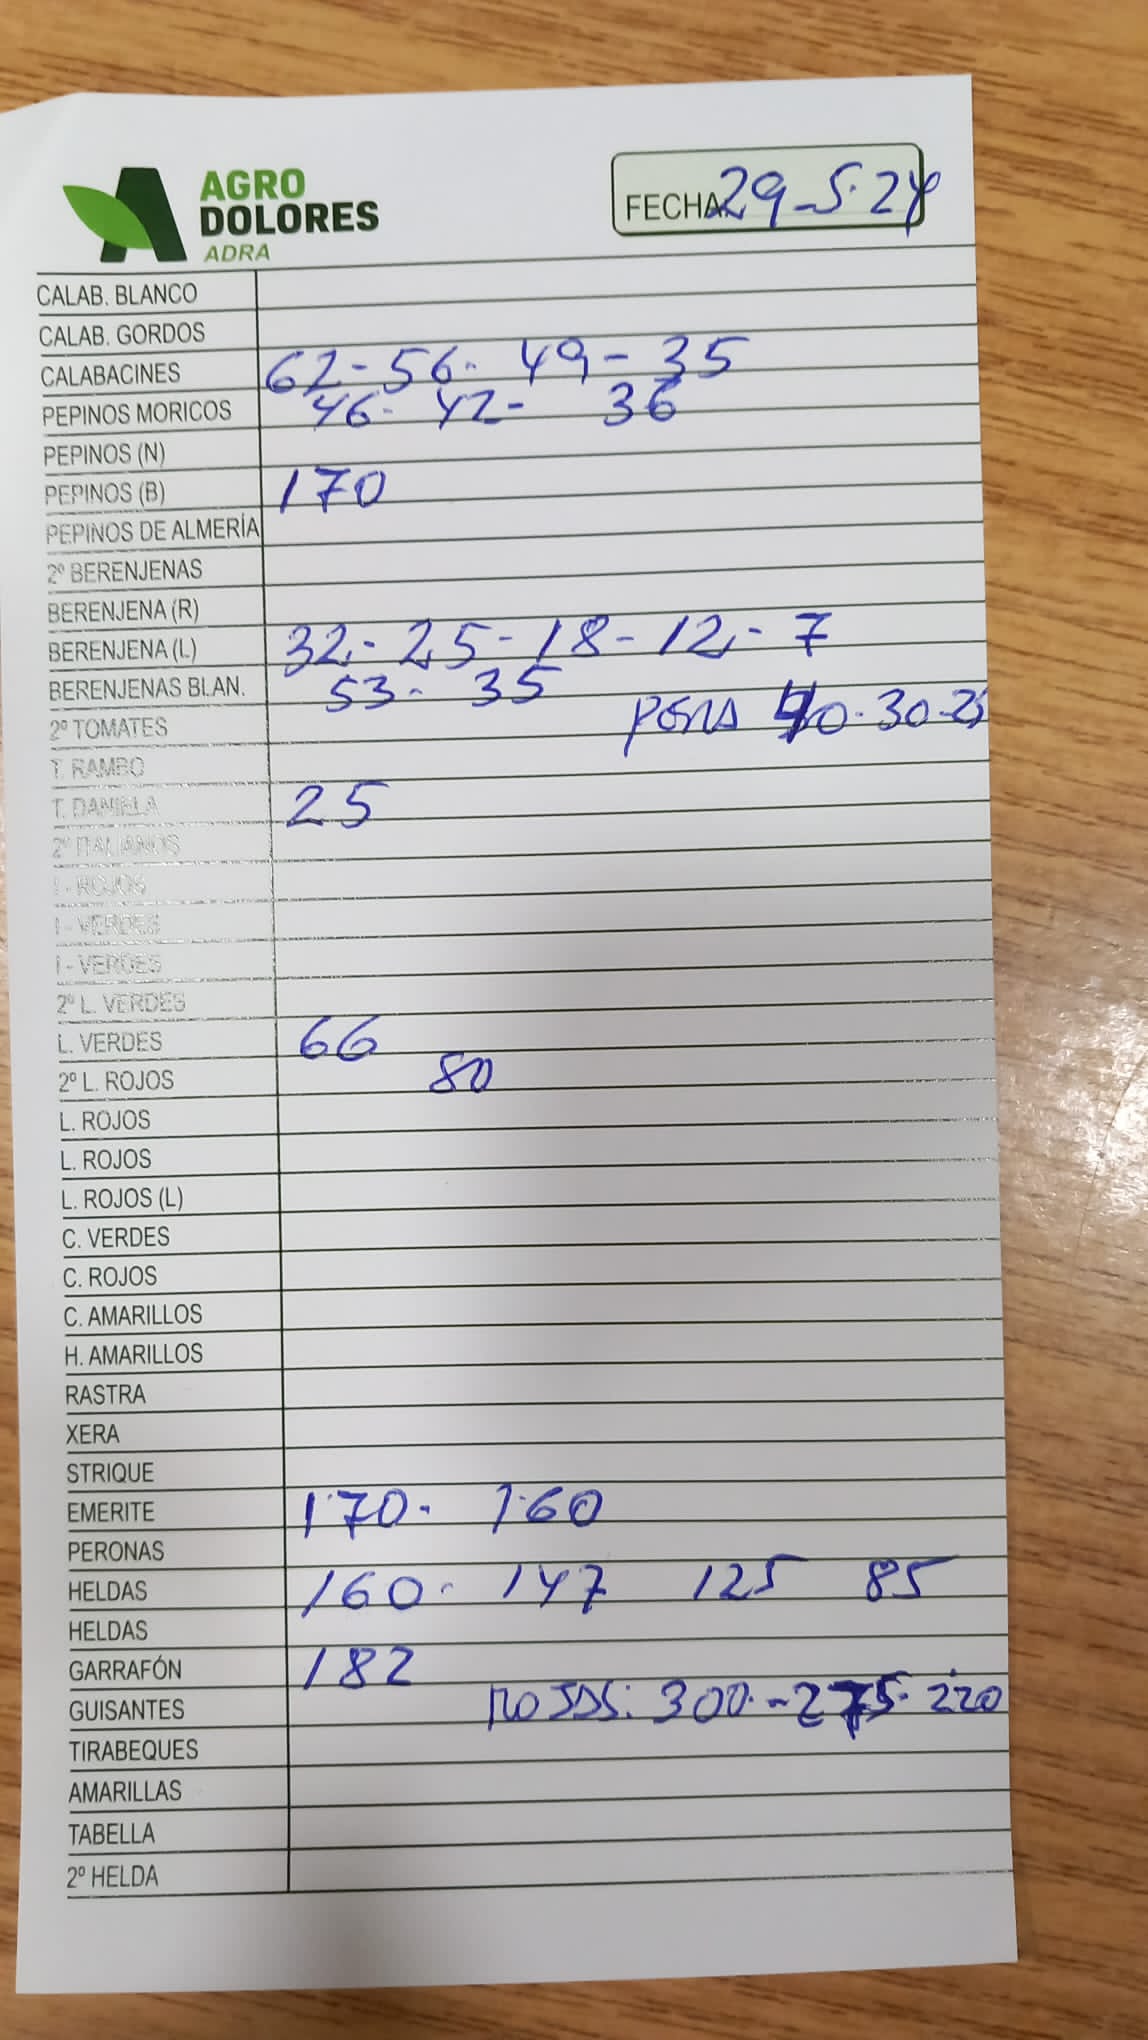 AGRO
DOLORES
ADRA
FECHA 29-5-24
CALAB. BLANCO
CALAB. GORDOS
CALABACINES 62-56-49-35
PEPINOS MORICOS 46-42-36
PEPINOS (N)
PEPINOS (B) 170
PEPINOS DE ALMERÍA
2º BERENJENAS
BERENJENA (R)
BERENJENA (L) 32-25-18-12-7
BERENJENAS BLAN. 53-35
2º TOMATES PERA 40-30-25
T. RAMBO
T. DANIELA 25
2º ITALIANOS
I - ROJOS
I - VERDES
I - VERDES
2º L. VERDES
L. VERDES 66
2º L. ROJOS 80
L. ROJOS
L. ROJOS
L. ROJOS (L)
C. VERDES
C. ROJOS
C. AMARILLOS
H. AMARILLOS
RASTRA
XERA
STRIQUE
EMERITE 170- 160
PERONAS
HELDAS 160- 147 125 85
HELDAS
GARRAFÓN 182
GUISANTES ROJAS: 300-275-220
TIRABEQUES
AMARILLAS
TABELLA
2º HELDA